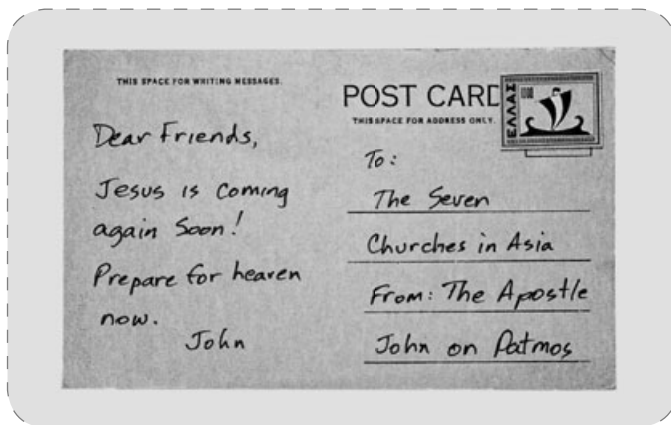 THIS SPACE FOR WRITING MESSAGES.
Dear Friends,
Jesus is coming
again Soon!
Prepare for heaven
now.
John
POST CARD
THIS SPACE FOR ADDRESS ONLY.
ΕΛΛΑΣ
To:
The Seven
Churches in Asia
From: The Apostle
John on Patmos